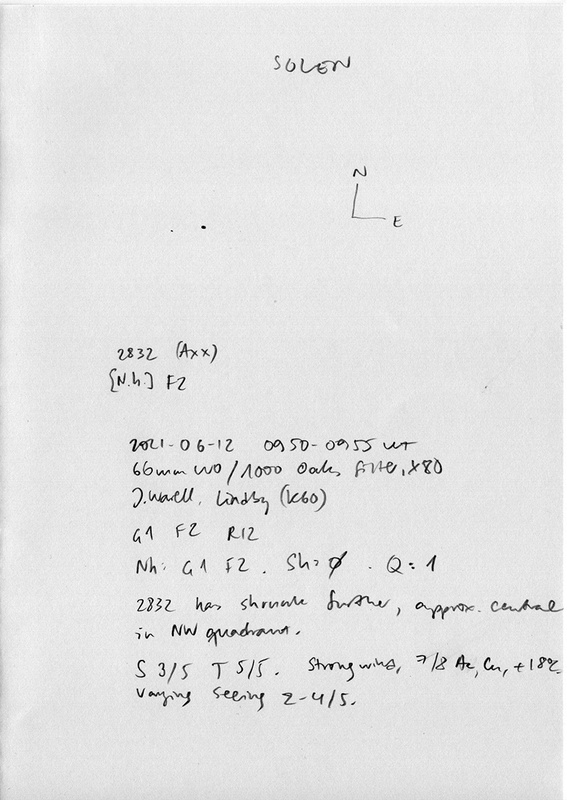 SOLEN
N
E
2832 (Axx)
[N.h.] F2
2021-06-12 0950-0955 UT
66mm WO/1000 Oaks filter, x80
J. Warell, Lindby (K60)
G1 F2 R12
Nh: G1 F2. Sh: Ø. Q: 1
2832 has shrunk further, approx. central
in NW quadrant.
S 3/5 T 5/5. Strong wind, 7/8 Ac, Cu, +18°C.
Varying seeing 2-4/5.